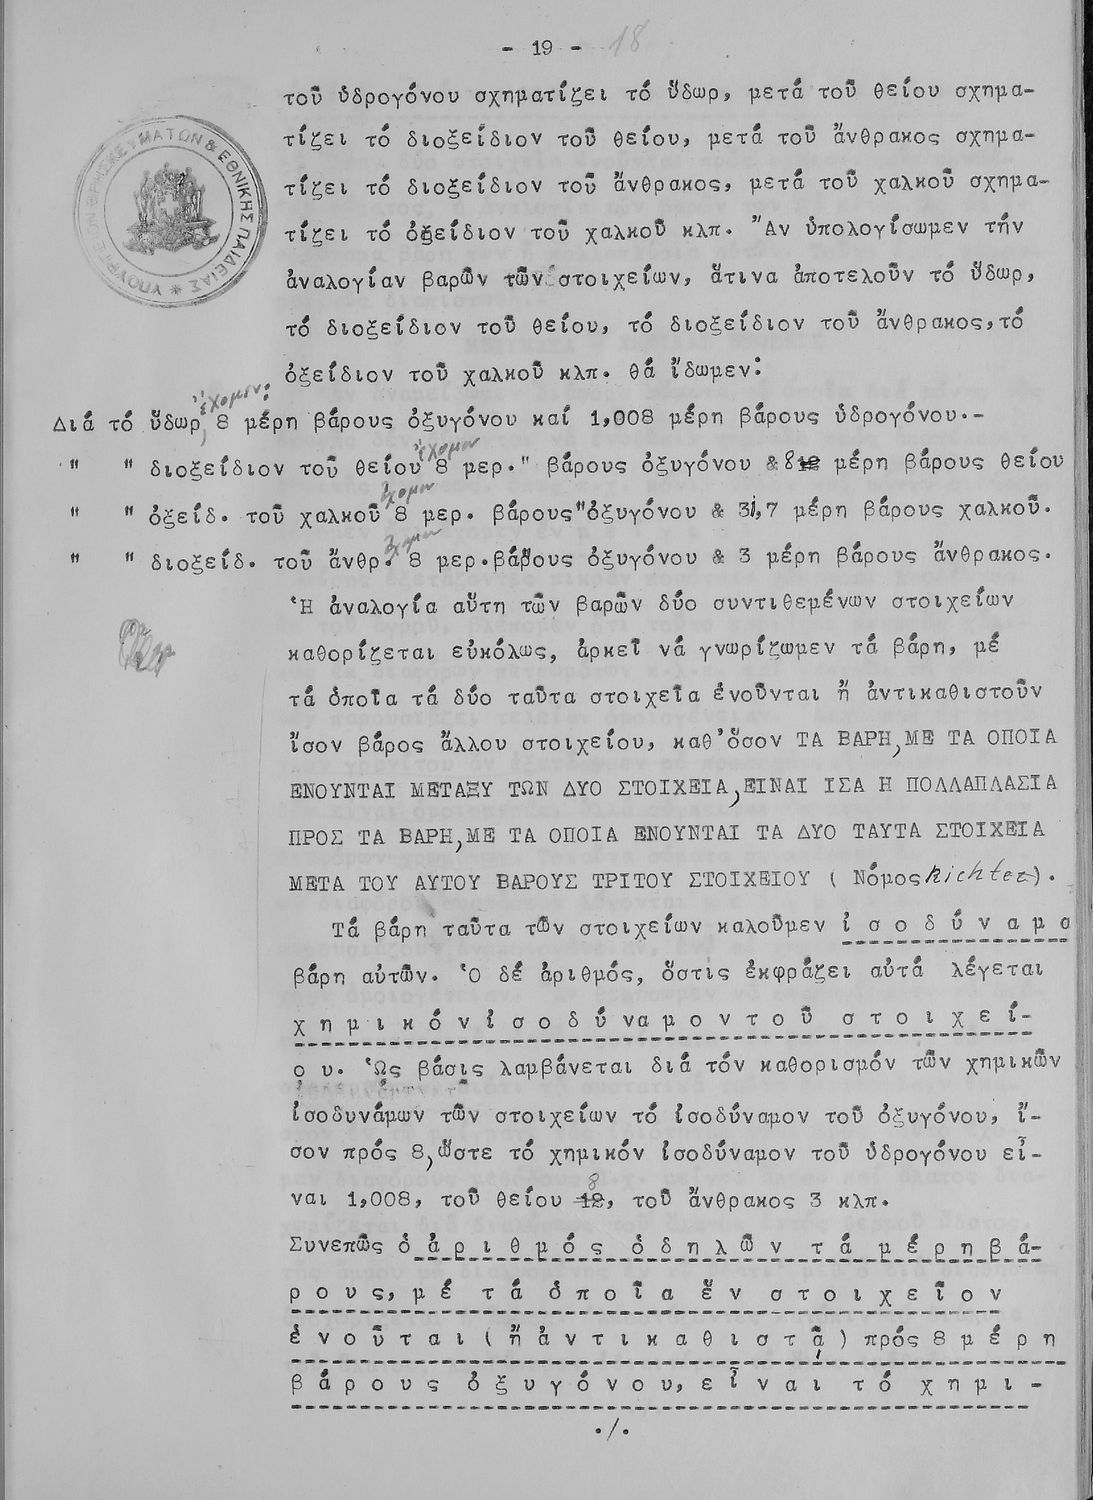 - 19 - 18
τοῦ ὑδρογόνου σχηματίζει τό ὕδωρ, μετά τοῦ θείου σχημα-
τίζει τό διοξείδιον τοῦ θείου, μετά τοῦ ἄνθρακος σχημα-
τίζει τό διοξείδιον τοῦ ἄνθρακος, μετά τοῦ χαλκοῦ σχημα-
τίζει τό ὀξείδιον τοῦ χαλκοῦ κλπ. Ἄν ὑπολογίσωμεν τήν
ἀναλογίαν βαρῶν τῶν στοιχείων, ἅτινα ἀποτελοῦν τό ὕδωρ,
τό διοξείδιον τοῦ θείου, τό διοξείδιον τοῦ ἄνθρακος, τό
ὀξείδιον τοῦ χαλκοῦ κλπ. θά ἴδωμεν:
ΥΠΟΥΡΓΕΙΟΝ ΘΡΗΣΚΕΥΜΑΤΩΝ & ΕΘΝΙΚΗΣ ΠΑΙΔΕΙΑΣ *
ἔχομεν:
Διά τό ὕδωρ, 8 μέρη βάρους ὀξυγόνου καί 1,008 μέρη βάρους ὑδρογόνου.-
ἔχομεν
" " διοξείδιον τοῦ θείου 8 μερ." βάρους ὀξυγόνου & 8 12 μέρη βάρους θείου
ἔχομεν
" " ὀξείδ. τοῦ χαλκοῦ 8 μερ. βάρους" ὀξυγόνου & 31,7 μέρη βάρους χαλκοῦ.
ἔχομεν
" " διοξείδ. τοῦ ἄνθρ. 8 μερ. βάρους ὀξυγόνου & 3 μέρη βάρους ἄνθρακος.
Ἡ ἀναλογία αὕτη τῶν βαρῶν δύο συντιθεμένων στοιχείων
καθορίζεται εὐκόλως, ἀρκεῖ νά γνωρίζωμεν τά βάρη, μέ
τά ὁποῖα τά δύο ταῦτα στοιχεῖα ἑνοῦνται ἤ ἀντικαθιστοῦν
ἴσον βάρος ἄλλου στοιχείου, καθ' ὅσον ΤΑ ΒΑΡΗ, ΜΕ ΤΑ ΟΠΟΙΑ
ΕΝΟΥΝΤΑΙ ΜΕΤΑΞΥ ΤΩΝ ΔΥΟ ΣΤΟΙΧΕΙΑ, ΕΙΝΑΙ ΙΣΑ Η ΠΟΛΛΑΠΛΑΣΙΑ
ΠΡΟΣ ΤΑ ΒΑΡΗ, ΜΕ ΤΑ ΟΠΟΙΑ ΕΝΟΥΝΤΑΙ ΤΑ ΔΥΟ ΤΑΥΤΑ ΣΤΟΙΧΕΙΑ
ΜΕΤΑ ΤΟΥ ΑΥΤΟΥ ΒΑΡΟΥΣ ΤΡΙΤΟΥ ΣΤΟΙΧΕΙΟΥ ( Νόμος Richter).
Τά βάρη ταῦτα τῶν στοιχείων καλοῦμεν ἰ σ ο δ ύ ν α μ α
βάρη αὐτῶν. Ὁ δέ ἀριθμός, ὅστις ἐκφράζει αὐτά λέγεται
χ η μ ι κ ό ν ἰ σ ο δ ύ ν α μ ο ν τ ο ῦ σ τ ο ι χ ε ί-
ο υ. Ὡς βάσις λαμβάνεται διά τόν καθορισμόν τῶν χημικῶν
ἰσοδυνάμων τῶν στοιχείων τό ἰσοδύναμον τοῦ ὀξυγόνου, ἴ-
σον πρός 8, ὥστε τό χημικόν ἰσοδύναμον τοῦ ὑδρογόνου εἶ-
ναι 1,008, τοῦ θείου 12 8, τοῦ ἄνθρακος 3 κλπ.
Συνεπῶς ὁ ἀ ρ ι θ μ ό ς ὁ δ η λ ῶ ν τ ά μ έ ρ η β ά-
ρ ο υ ς, μ έ τ ά ὁ π ο ῖ α ἕ ν σ τ ο ι χ ε ῖ ο ν
ἑ ν ο ῦ τ α ι ( ἤ ἀ ν τ ι κ α θ ι σ τ ᾷ ) πρός 8 μ έ ρ η
β ά ρ ο υ ς ὀ ξ υ γ ό ν ο υ, ε ἶ ν α ι τ ό χ η μ ι -
./.